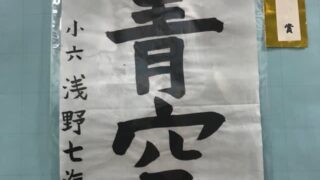 青空
小六 浅野七海
賞